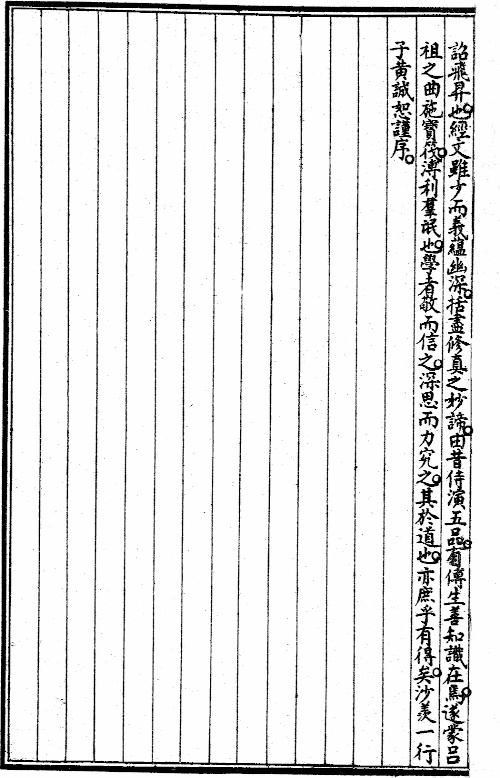 詔飛昇也。經文雖少而義蘊幽深。括盡修真之妙諦。由昔侍演五品。匍傅生善知識在焉。遂蒙呂
祖之曲施寶筏。溥利羣氓也。學者敬而信之。深思而力究之。其於道也。亦庶乎有得矣。沙羨一行
子黃誠恕謹序。